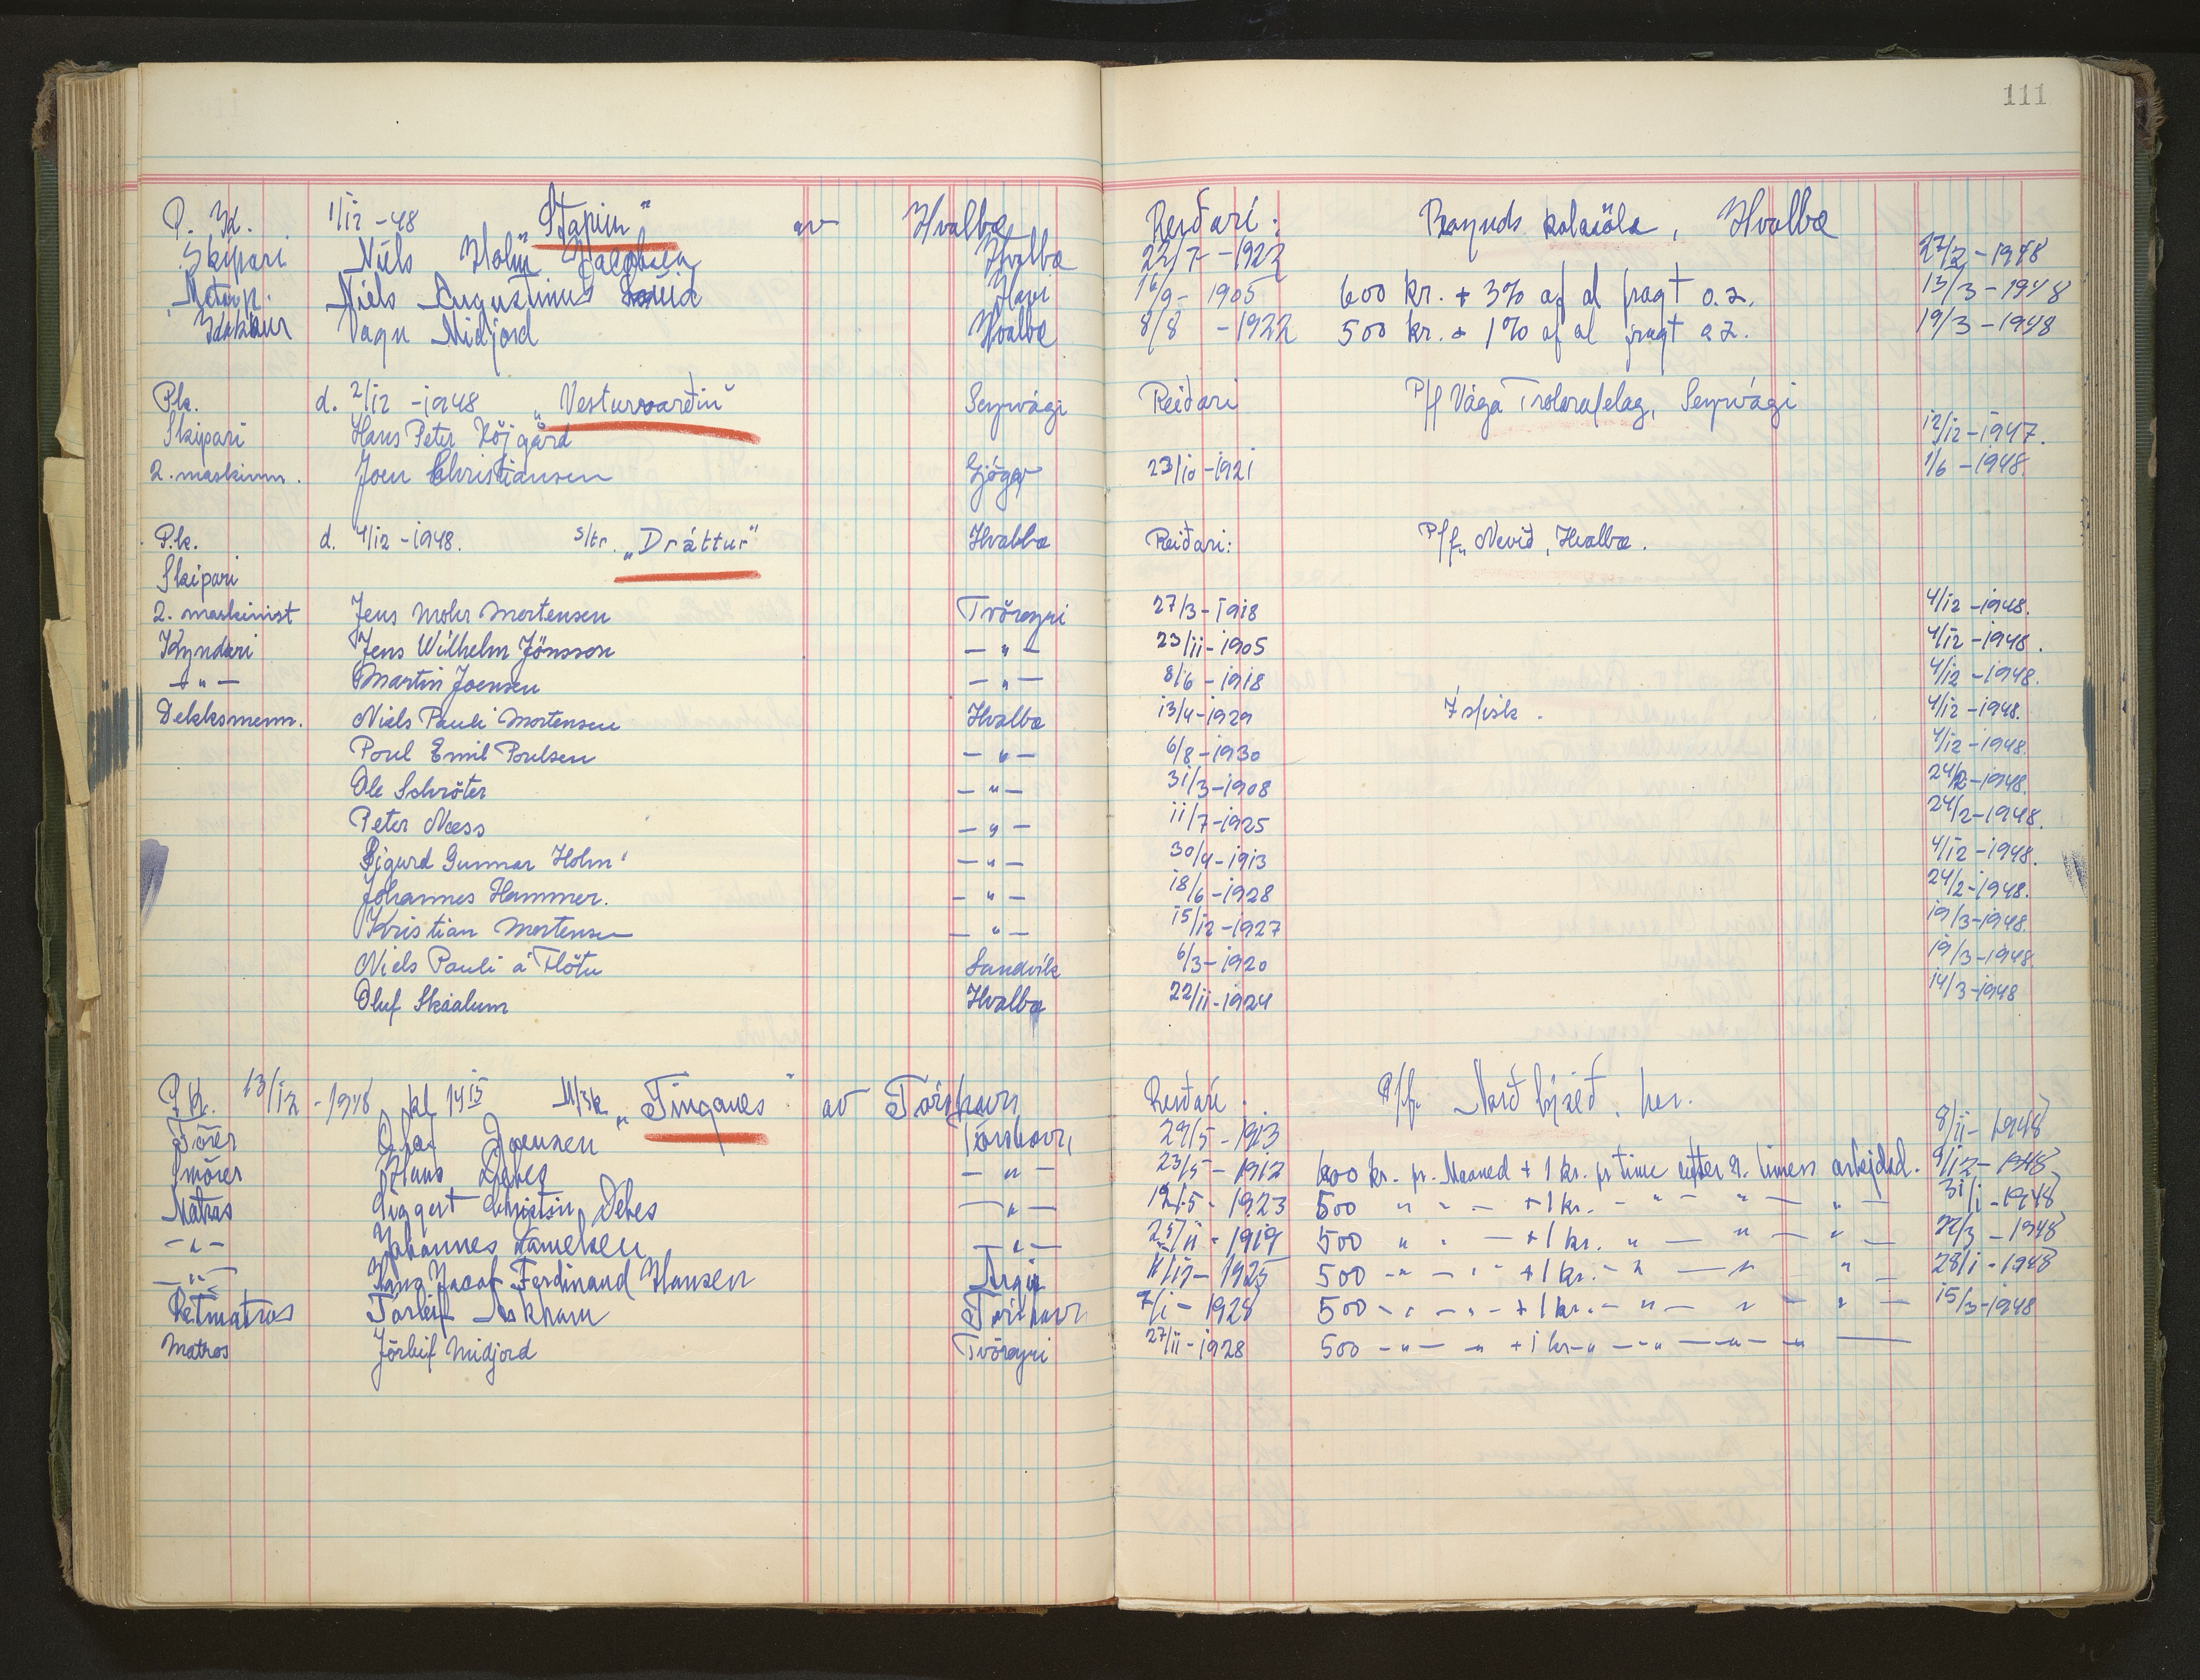 111
P. K. 1/12 - 48 "Stapin" av Hvalba Reiðari: Hvalba
Skipari Niels Holm Jacobsen Hvalba 22/7 - 1922 27/2 - 1948
Motorp. Niels Augustinus 16/9 - 1905 600 kr. + 3% af al fragt o.a. 13/3 - 1948
Kokkur Vagn Midjord Hvalba 8/8 - 1922 500 kr. + 1% af al fragt o.a. 19/3 - 1948
P.k. d. 2/12 - 1948 „Vesturvarðin" Sørvági Reiðari P/f Vága Trolarafelag, Sørvági
Skipari Hans Peter Højgård 12/12 - 1947.
2. maskinm. Joen Christiansen Gjógv 23/10 - 1921 1/6 - 1948.
P.k. d. 4/12 - 1948. s/tr. „Dráttur" Hvalba Reiðari: P/f. Nevið, Hvalba.
Skipari
2. maskinist Jens Mohr Mortensen Tvöroyri 27/3 - 1918 4/12 - 1948.
Kyndari Jens Wilhelm Jönsson — " — 23/11 - 1905 4/12 - 1948.
— " — Martin Joensen — " — 8/6 - 1918 4/12 - 1948.
Dekksmenn. Niels Pauli Mortensen Hvalba 13/4 - 1929 Ísfisk. 4/12 - 1948.
Poul Emil Poulsen — " — 6/8 - 1930 4/12 - 1948.
Ole Schröter — " — 31/3 - 1908 24/2 - 1948.
Peter Næss — " — 11/7 - 1925 24/2 - 1948.
Sigurd Gunnar Holm — " — 30/4 - 1913 4/12 - 1948.
Johannes Hammer. — " — 18/6 - 1928 24/2 - 1948.
Kristian Mortensen — " — 15/12 - 1927 19/3 - 1948.
Niels Pauli á Fløtu Sandvík 6/3 - 1920 19/3 - 1948.
Oluf Skaalum Hvalba 22/11 - 1924 14/3 - 1948
P.K. 13/12 - 1948 kl 14 15 M/sk „Tinganes" av Tórshavn Reiðari. P/f. her.
Joensen Tórshavn 29/5 - 1913 8/11 - 1948
Smörer Hans Debes — " — 23/5 - 1912 600 kr. pr. Maaned + 1 kr. pr time efter 8. timers arbejdsd. 9/12 - 1948
Matros Christin Debes — " — 12/5 - 1923 500 " " — + 1 kr. - " - " — " — 31/1 - 1948
— " — Johannes Danielsen — " — 25/11 - 1919 500 " " — + 1 kr. " — " — " — 22/3 - 1948
— " — Hans Jacob Ferdinand Hansen Argir 11/12 - 1925 500 - " — " - + 1 kr. - " — " — " — 28/1 - 1948
Letmatros Torleif Tórshavn 7/1 - 1928 500 - " - " - + 1 kr. - " — " — " — 15/3 - 1948
Matros Jórleif Midjord Tvöroyri 27/11 - 1928 500 - " — " + 1 kr - " — " — " — " —